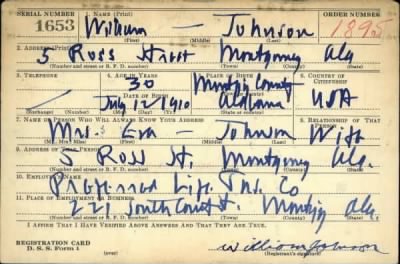 SERIAL NUMBER 1. NAME (Print) ORDER NUMBER
1653 William — Johnson 1895
(First) (Middle) (Last)
2. ADDRESS (Print)
5 Ross Street Montgomery Ala
(Number and street or R. F. D. number) (Town) (County) (State)
3. TELEPHONE 4. AGE IN YEARS 5. PLACE OF BIRTH 6. COUNTRY OF CITIZENSHIP
30 County
DATE OF BIRTH
July 12 1910 Alabama USA
(Exchange) (Number) (Mo.) (Day) (Yr.) (State or country)
7. NAME OF PERSON WHO WILL ALWAYS KNOW YOUR ADDRESS 8. RELATIONSHIP OF THAT PERSON
Mrs. Eva — Johnson Wife
(Mr., Mrs., Miss) (First) (Middle) (Last)
9. ADDRESS OF THAT PERSON
5 Ross St, Montgomery Ala.
(Number and street or R. F. D. number) (Town) (County) (State)
10. EMPLOYER'S NAME
Preferred Life Ins. Co
11. PLACE OF EMPLOYMENT OR BUSINESS
221 South Court St. Ala
(Number and street or R. F. D. number) (Town) (County) (State)
I AFFIRM THAT I HAVE VERIFIED ABOVE ANSWERS AND THAT THEY ARE TRUE.
REGISTRATION CARD
D. S. S. Form 1
William Johnson
(Registrant's signature)